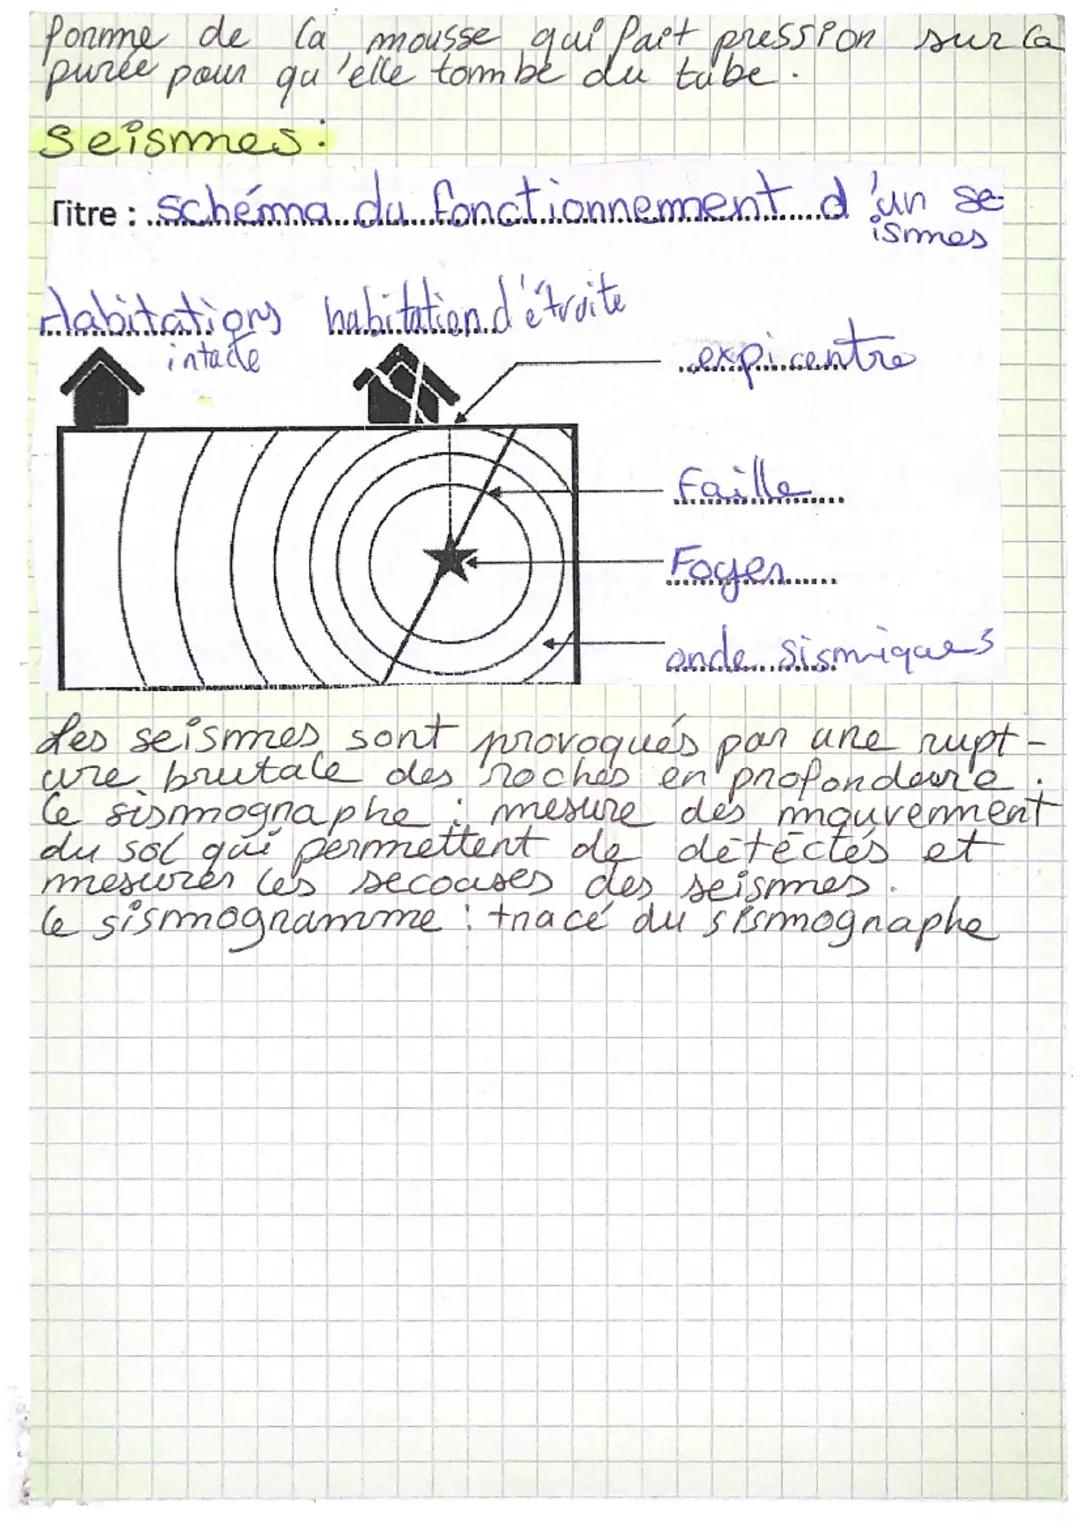 forme de la mousse qui fait pression sur la
purée pour qu'elle tombe du tube.
seismes:
Titre : schéma du fonctionnement d'un se-
ismes
Habitations habitation d'étruite
intacte
expicentre
Faille
Foyer
onde sismiques
Les seismes sont provoqués par une rupt-
ure brutale des roches en profondeure.
Le sismographe : mesure des mouvement
du sol qui permettent de détectés et
mesurer les secouses des seismes.
le sismogramme : tracé du sismographe